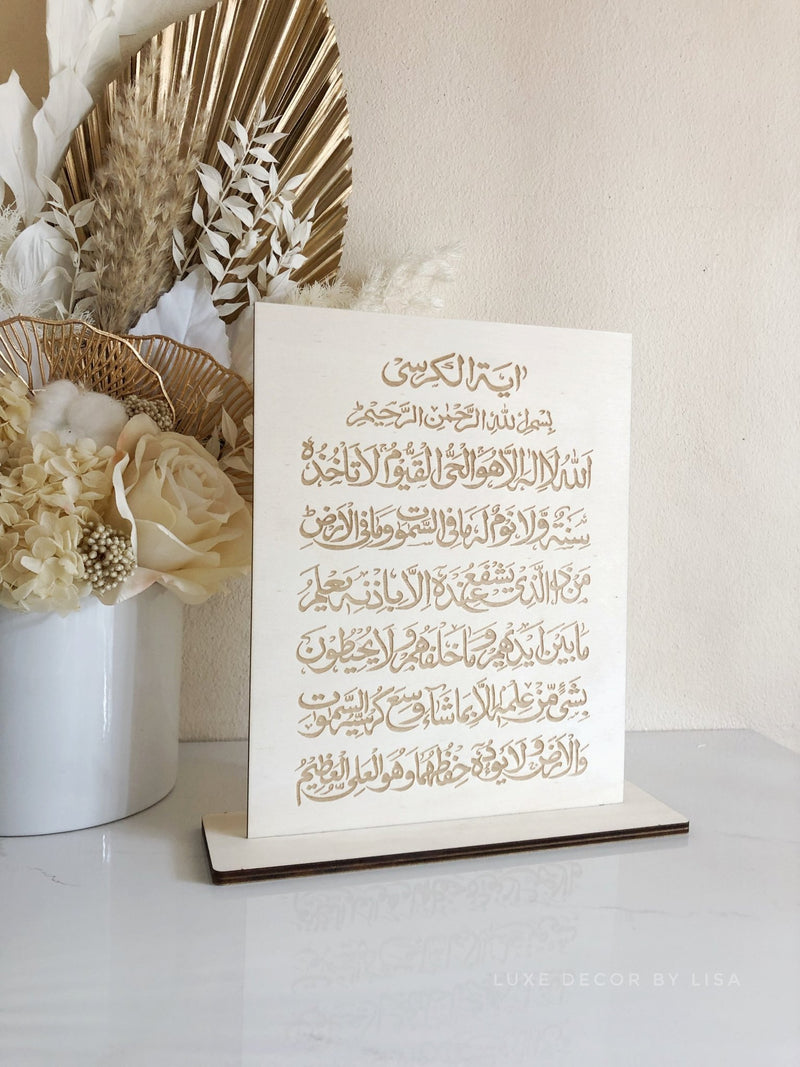 اٰية الكرسى
بِسْمِ اللهِ الرَّحْمٰنِ الرَّحِيْمِ
اَللهُ لَا اِلٰهَ اِلَّا هُوَ الْحَىُّ الْقَيُّوْمُ لَا تَاْخُذُهٗ
سِنَةٌ وَّلَا نَوْمٌ لَهٗ مَا فِى السَّمٰوٰتِ وَمَا فِى الْاَرْضِ
مَنْ ذَا الَّذِىْ يَشْفَعُ عِنْدَهٗ اِلَّا بِاِذْنِهٖ يَعْلَمُ
مَا بَيْنَ اَيْدِيْهِمْ وَمَا خَلْفَهُمْ وَلَا يُحِيْطُوْنَ
بِشَىْءٍ مِّنْ عِلْمِهٖ اِلَّا بِمَا شَآءَ وَسِعَ كُرْسِيُّهُ السَّمٰوٰتِ
وَالْاَرْضَ وَلَا يَئُوْدُهٗ حِفْظُهُمَا وَهُوَ الْعَلِىُّ الْعَظِيْمُ
LUXE DECOR BY LISA